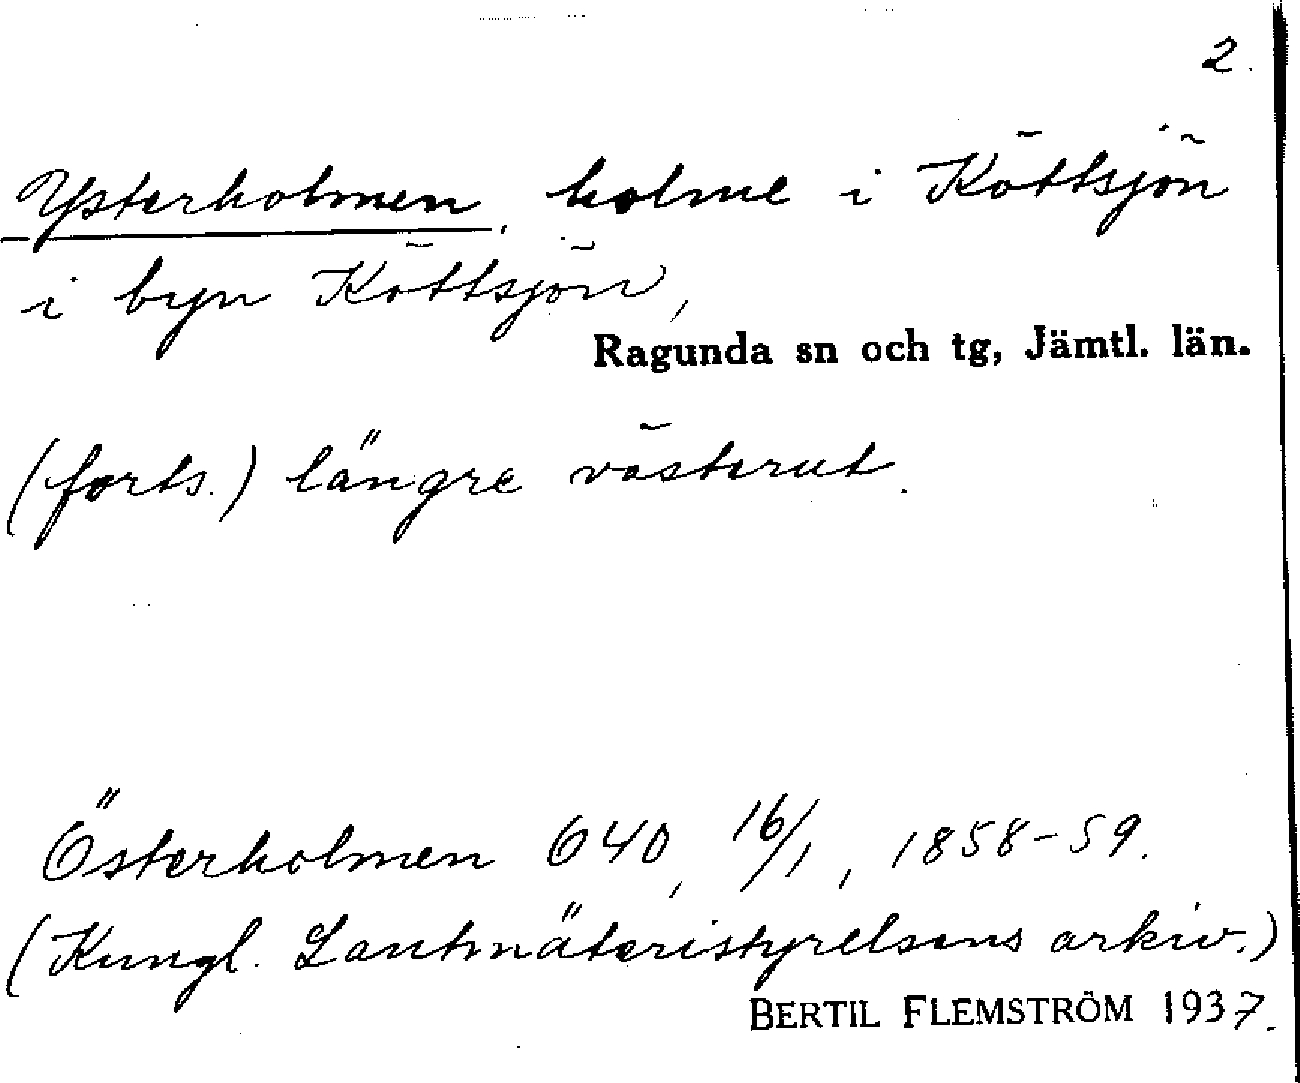 2.
Ysterholmen, holme i Köttsjön
i byn Köttsjön,
Ragunda sn och tg, Jämtl. län.
(forts.) längre västerut.
Österholmen 640, 16/1, 1858-59.
(Kungl. Lantmäteristyrelsens arkiv.)
BERTIL FLEMSTRÖM 1937.